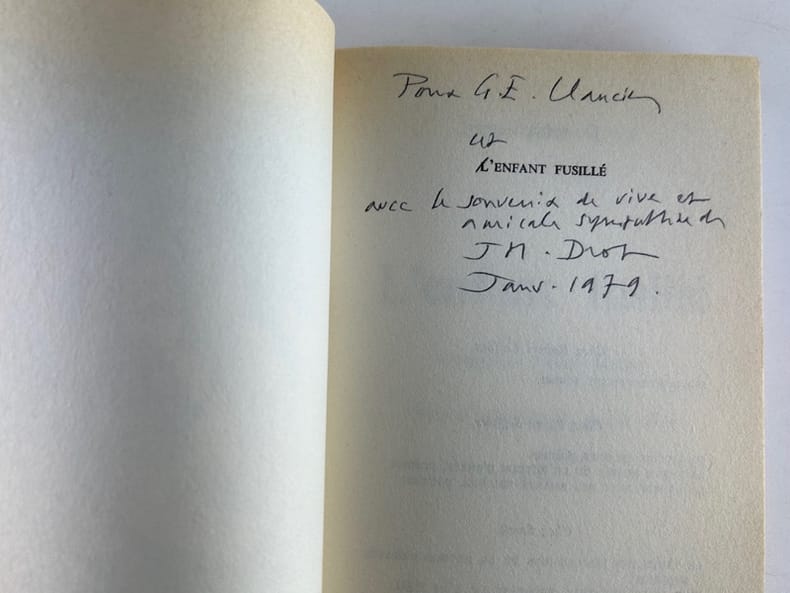 Pour G.E. Clancier
cet
L'ENFANT FUSILLÉ
avec le souvenir de vive et
amicale sympathie de
J M. Drot
Janv. 1979.